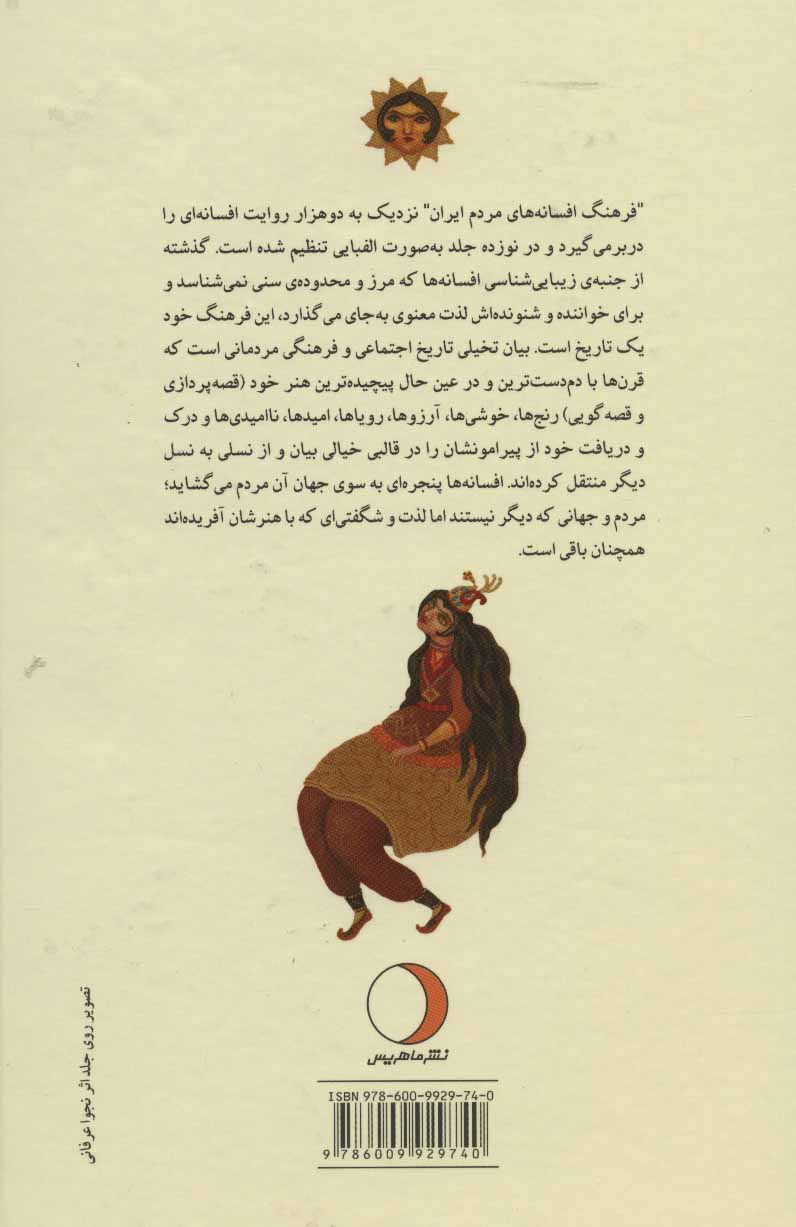 "فرهنگ افسانه‌های مردم ایران" نزدیک به دوهزار روایت افسانه‌ای را
دربرمی‌گیرد و در نوزده جلد به‌صورت الفبایی تنظیم شده است. گذشته
از جنبه‌ی زیبایی‌شناسی افسانه‌ها که مرز و محدوده‌ی سنی نمی‌شناسد و
برای خواننده و شنونده‌اش لذت معنوی به‌جای می‌گذارد، این فرهنگ خود
یک تاریخ است. بیان تخیلی تاریخ اجتماعی و فرهنگی مردمانی است که
قرن‌ها با دم‌دست‌ترین و در عین حال پیچیده‌ترین هنر خود (قصه‌پردازی
و قصه‌گویی) رنج‌ها، خوشی‌ها، آرزوها، رویاها، امیدها، ناامیدی‌ها و درک
و دریافت خود از پیرامونشان را در قالبی خیالی بیان و از نسلی به نسل
دیگر منتقل کرده‌اند. افسانه‌ها پنجره‌ای به سوی جهان آن مردم می‌گشاید؛
مردم و جهانی که دیگر نیستند اما لذت و شگفتی‌ای که با هنرشان آفریده‌اند
همچنان باقی است.
نشر ماهریس
تصویر روی جلد اثر نجوا عرفانی
ISBN 978-600-9929-74-0
9 786009 929740